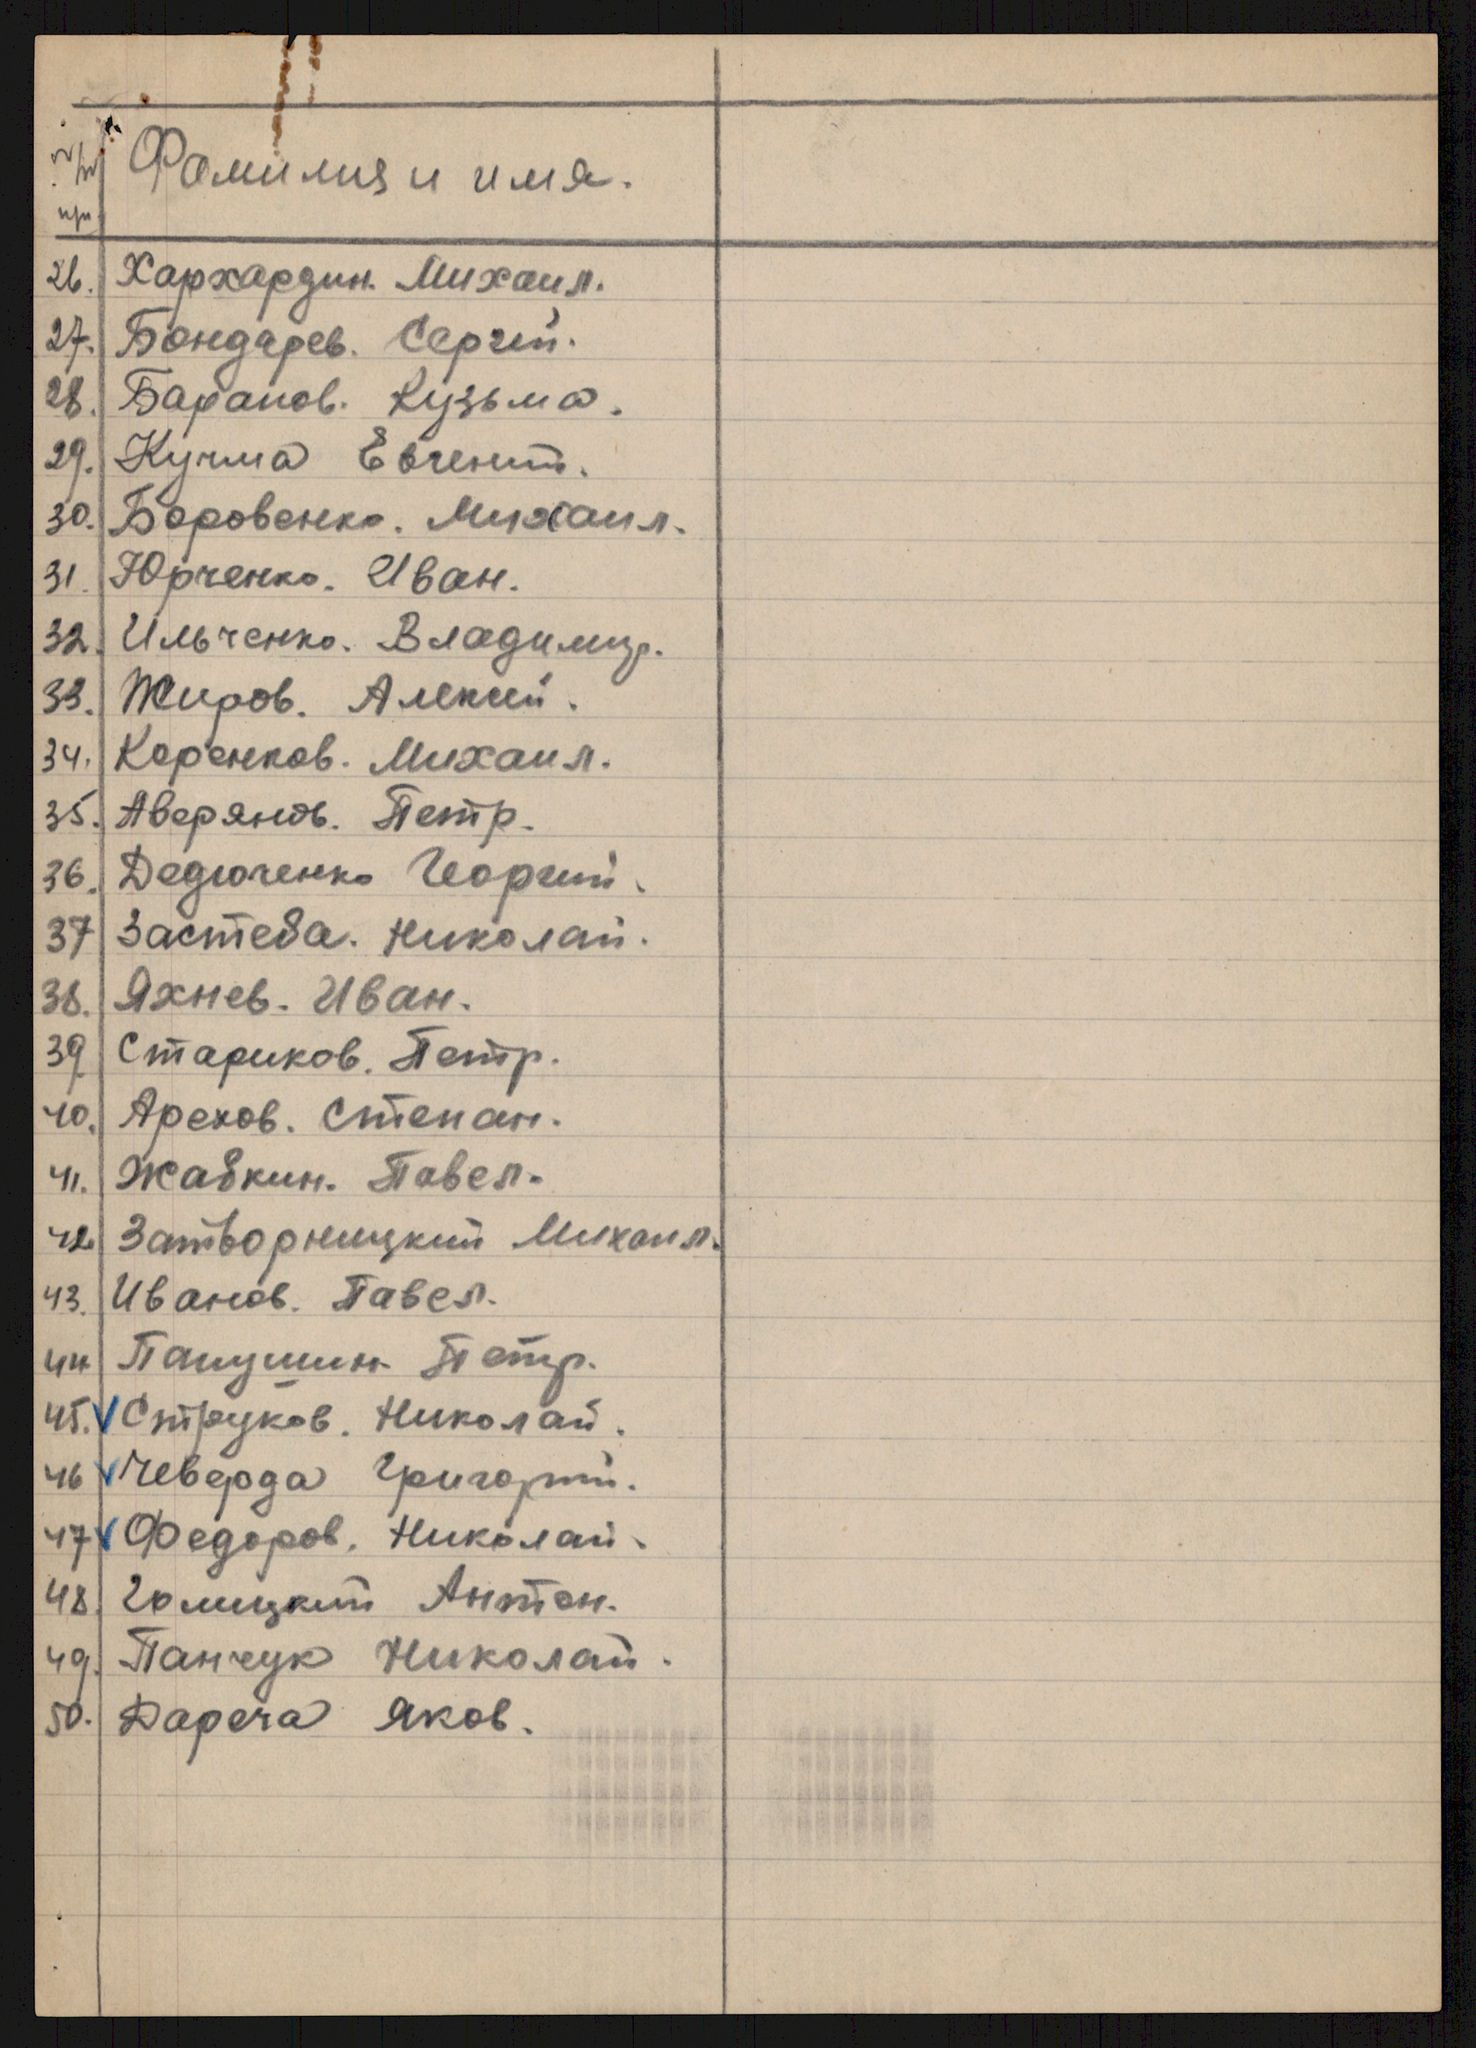 №№ п/п Фамилия и имя.
26. Хархардин. Михаил.
27. Бондарев. Сергей.
28. Баранов. Кузьма.
29. Кучма Евгений.
30. Боровенко. Михаил.
31. Юрченко. Иван.
32. Ильченко. Владимир.
33. Жиров. Алексей.
34. Коренков. Михаил.
35. Аверянов. Петр.
36. Дедюченко Георгий.
37 Застеба. Николай.
38. Яхнев. Иван.
39 Стариков. Петр.
40. Арехов. Степан.
41. Жабкин. Павел.
42. Затворницкий Михаил.
43. Иванов. Павел.
44 Папушин. Петр.
45. V Струков. Николай.
46 V Чеверда Григорий.
47 V Федоров. Николай.
48. Голицкий Антон.
49. Панчук Николай.
50. Дареча Яков.